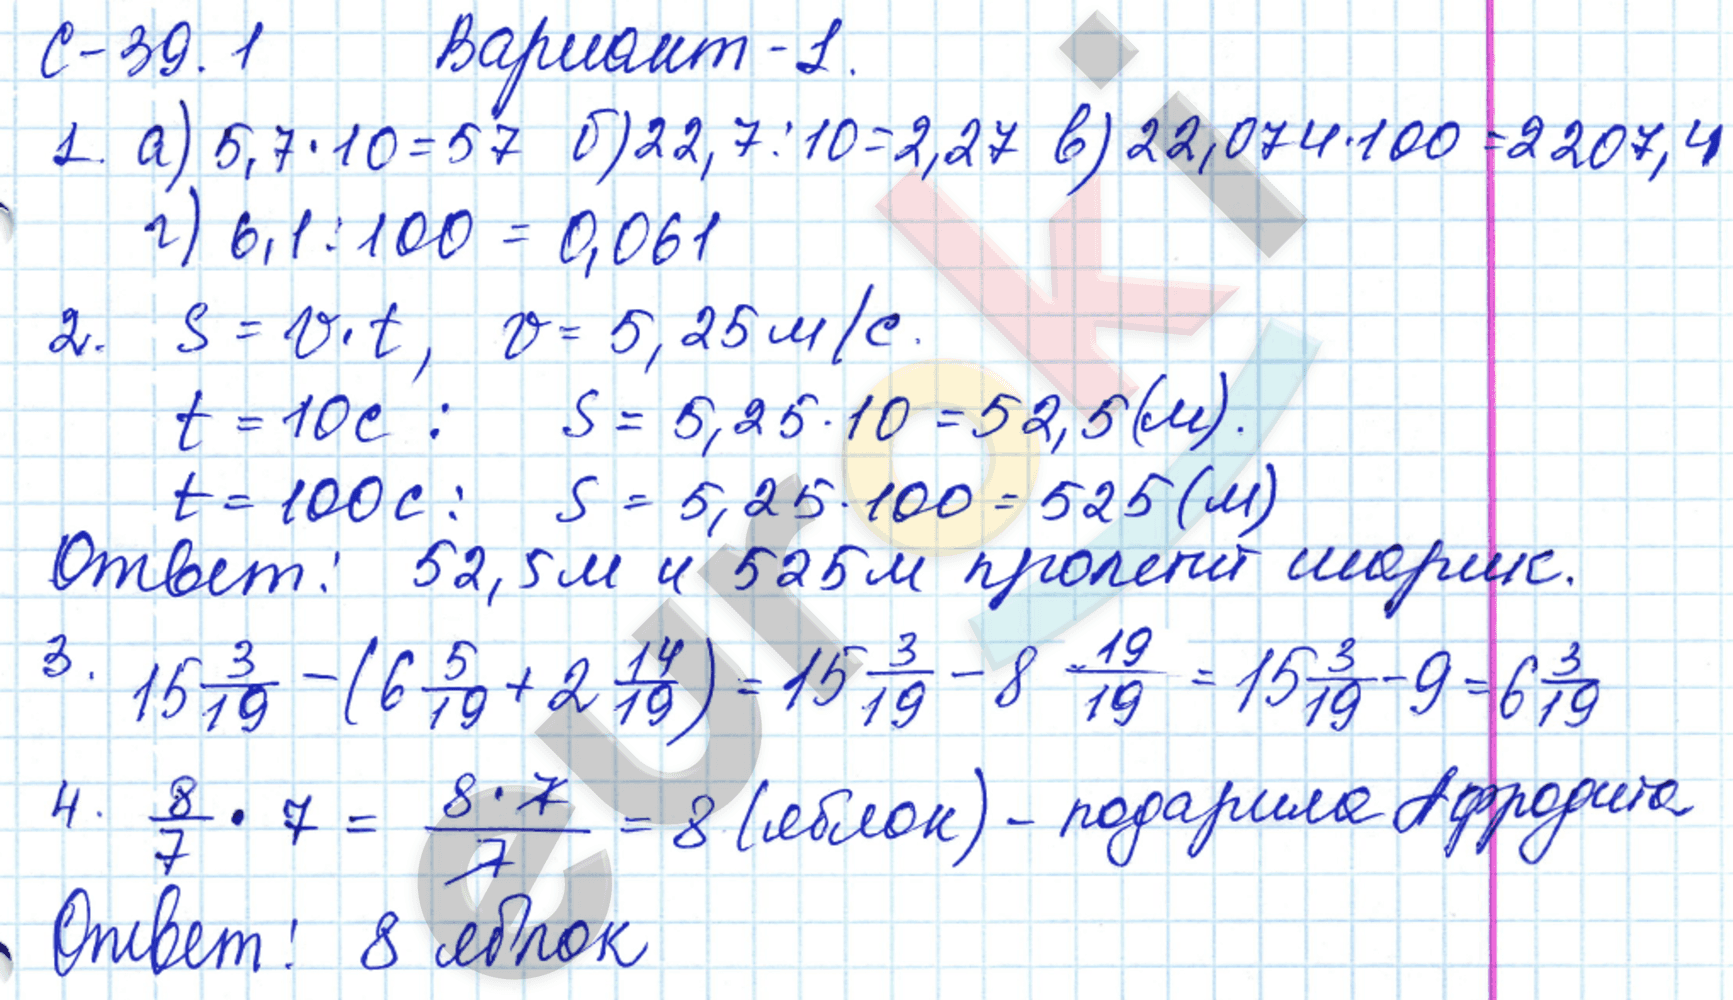 С-39.1 Вариант-1.
1. а) 5,7·10=57 б) 22,7:10=2,27 в) 22,074·100=2207,4
г) 6,1:100 = 0,061
2. S = v·t, v = 5,25 м/с.
t = 10с: S = 5,25·10 = 52,5 (м).
t = 100с: S = 5,25·100 = 525 (м)
Ответ: 52,5 м и 525 м пролетит шарик.
3. 15 3/19 - (6 5/19 + 2 14/19) = 15 3/19 - 8 19/19 = 15 3/19 - 9 = 6 3/19
4. 8/7 · 7 = 8·7/7 = 8 (яблок) - подарила Афродита
Ответ: 8 яблок
euroki